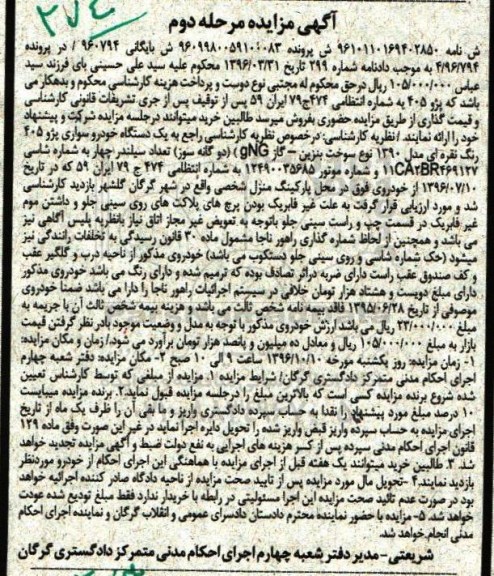 ۳۷۴
آگهی مزایده مرحله دوم
ش نامه ۹۶۱۰۱۱۰۱۶۹۴۰۲۸۵۰ ش پرونده ۹۶۰۹۹۸۰۰۵۹۱۰۰۰۸۳ ش بایگانی ۹۶۰۷۹۴ / در پرونده
۴/۹۶/۷۹۴ به موجب دادنامه شماره ۲۹۹ تاریخ ۱۳۹۶/۰۳/۳۱ محکوم علیه سید علی حسینی بای فرزند سید
عباس ۱۰۵/۰۰۰/۰۰۰ ریال درحق محکوم له مجتبی نوع دوست و پرداخت هزینه کارشناسی محکوم و بدهکار می
باشد که پژو ۴۰۵ به شماره انتظامی ۴۷۴ج۷۹ ایران ۵۹ پس از توقیف پس از جری تشریفات قانونی کارشناسی
و قیمت گذاری از طریق مزایده حضوری بفروش میرسد طالبین خرید میتوانند درجلسه مزایده شرکت و پیشنهاد
خود را ارائه نمایند /نظریه کارشناسی: درخصوص نظریه کارشناسی راجع به یک دستگاه خودرو سواری پژو ۴۰۵
رنگ نقره ای مدل ۱۳۹۰ نوع سوخت بنزین – گاز gNG ) (دو گانه سوز) تعداد سیلندر چهار به شماره شاسی
۱۱CA۲BR۴۶۹۱۲۷ و شماره موتور ۱۲۴۹۰۰۳۵۶۸۵ به شماره انتظامی ۴۷۴ ج ۷۹ ایران ۵۹ که در تاریخ
۱۳۹۶/۰۷/۱۰ از خودروی فوق در محل پارکینگ منزل شخصی واقع در شهر گرگان گلشهر بازدید کارشناسی
شد و مورد ارزیابی قرار گرفت به علت غیر فابریک بودن پرچ های پلاکت های روی سینی جلو و داشتن موم
غیر فابریک در قسمت چپ و راست سینی جلو باتوجه به تعویض غیر مجاز اتاق نیاز بانظریه پلیس آگاهی نیز
می باشد و همچنین از لحاظ شماره گذاری راهور ناجا مشمول ماده ۳۰ قانون رسیدگی به تخلفات رانندگی نیز
میشود (حک شماره شاسی و روی سینی جلو دستکوب می باشد) خودروی مذکور از ناحیه درب و گلگیر عقب
و کف صندوق عقب راست دارای ضربه دراثر تصادف بوده که ترمیم شده و دارای رنگ می باشد خودروی مذکور
دارای مبلغ دویست و هشتاد هزار تومان خلافی در سیستم اجرائیات راهور ناجا را دارا می باشد ضمناً خودروی
موصوفی از تاریخ ۱۳۹۵/۰۶/۲۸ فاقد بیمه نامه شخص ثالث می باشد و هزینه بیمه شخص ثالث آن با جریمه به
مبلغ ۲۳/۰۰۰/۰۰۰ ریال می باشد ارزش خودروی مذکور با توجه به مدل و وضعیت موجود بادر نظر گرفتن قیمت
بازار به مبلغ ۱۰۵/۰۰۰/۰۰۰ ریال و معادل ده میلیون و پانصد هزار تومان برآورد می شود./ زمان و مکان مزایده:
۱- زمان مزایده: روز یکشنبه مورخه ۱۳۹۶/۱۰/۱۰ ساعت ۹ الی ۱۰ صبح ۲- مکان مزایده: دفتر شعبه چهارم
اجرای احکام مدنی متمرکز دادگستری گرگان/ شرایط مزایده ۱- مزایده از مبلغی که توسط کارشناس تعیین
شده شروع برنده مزایده کسی است که بالاترین مبلغ را درجلسه مزایده قبول نماید.۲. برنده مزایده میبایست
۱۰ درصد مبلغ مورد پیشنهاد را نقدا به حساب سپرده دادگستری واریز و ما بقی آن را ظرف یک ماه از تاریخ
اجرای مزایده به حساب سپرده واریز قبض واریز شده را تحویل دایره اجرا نماید در غیر این صورت وفق ماده ۱۲۹
قانون اجرای احکام مدنی سپرده پس از کسر هزینه های اجرایی به نفع دولت ضبط و آگهی مزایده تجدید خواهد
شد .۳. طالبین خرید میتوانند یک هفته قبل از اجرای مزایده با هماهنگی این اجرای احکام از خودرو موردنظر
بازدید نمایند.۴ -تحویل مال مورد مزایده پس از تایید صحت مزایده از ناحیه دادگاه صادر کننده اجرائیه خواهد
بود در صورت عدم تائید صحت مزایده این اجرا مسئولیتی در رابطه با خریدار ندارد فقط مبلغ تودیع شده عودت
خواهد شد. ۵- مزایده با حضور نماینده محترم دادستان دادسرای عمومی و انقلاب گرگان و نماینده اجرای احکام
مدنی انجام خواهد شد.
شریعتی - مدیر دفتر شعبه چهارم اجرای احکام مدنی متمرکز دادگستری گرگان